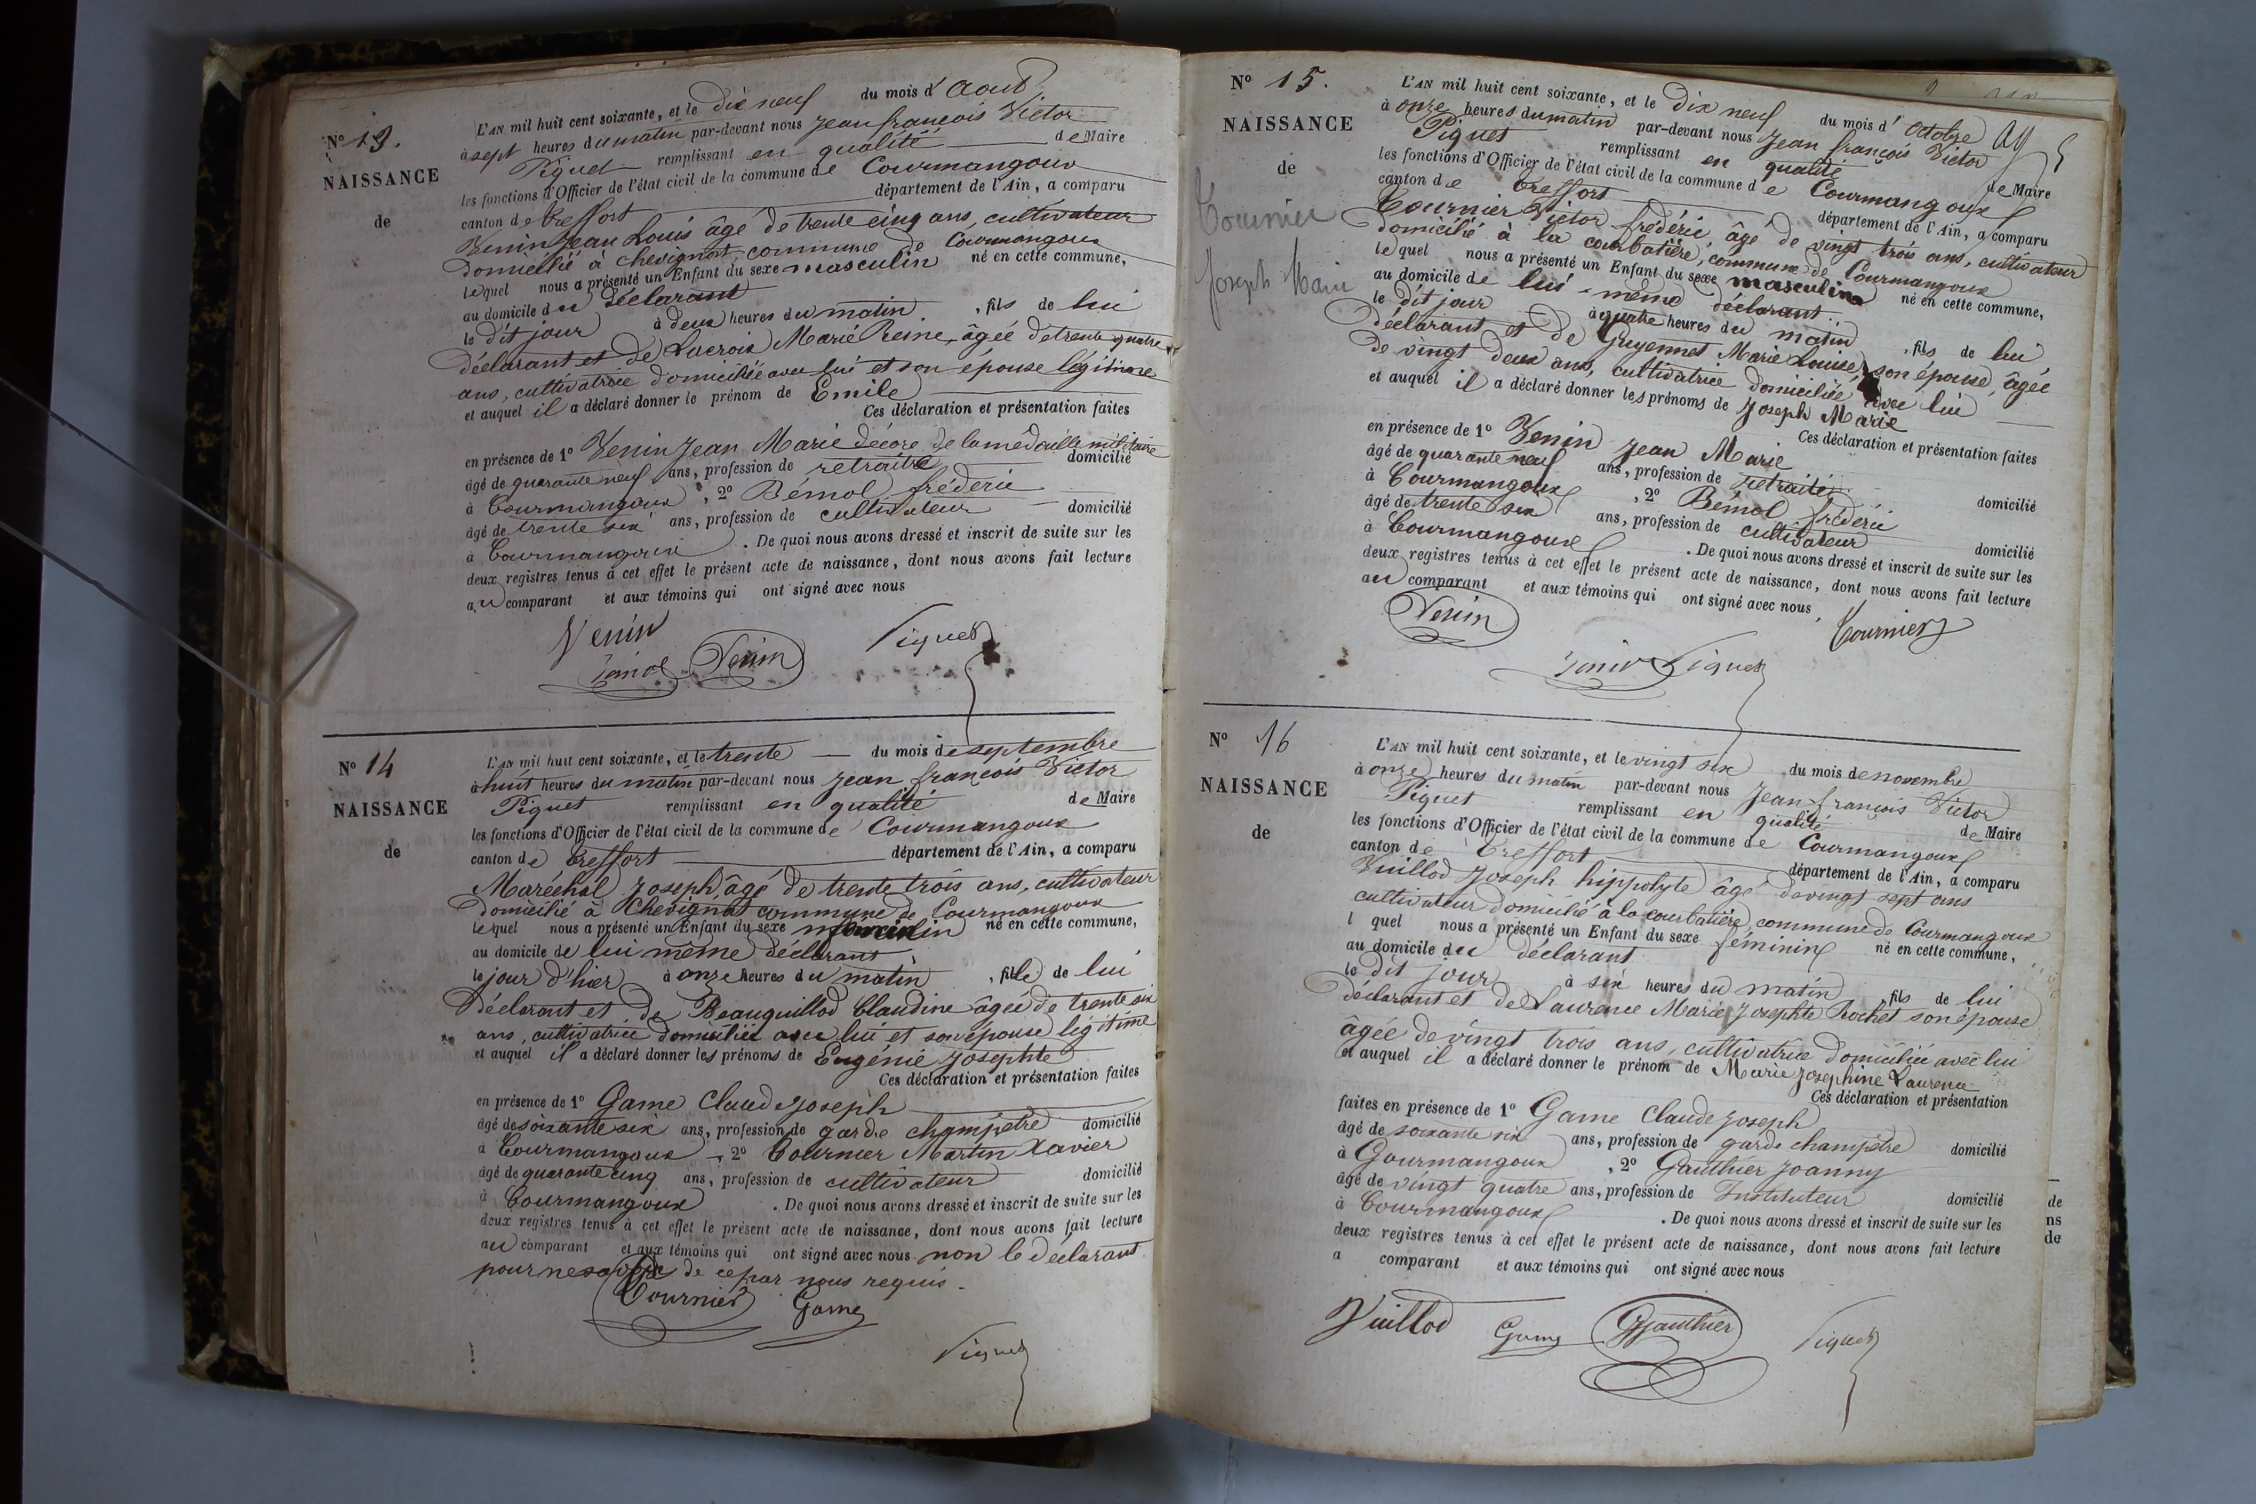 N° 13.
NAISSANCE
de
L'AN mil huit cent soixante, et le dix neuf du mois d' Aout
à sept heures du matin par-devant nous Jean françois Victor
Piquet remplissant en qualité de Maire
les fonctions d'Officier de l'état civil de la commune de Courmangoux
canton de Treffort département de l'Ain, a comparu
Venin Jean Louis âgé de trente cinq ans, cultivateur
domicilié à chevignat, commune de Courmangoux
lequel nous a présenté un Enfant du sexe masculin né en cette commune,
au domicile du déclarant
le dit jour à deux heures du matin, fils de lui
déclarant et de Lacroix Marie Reine, âgée de trente quatre
ans, cultivatrice domiciliée avec lui et son épouse légitime
et auquel il a déclaré donner le prénom de Emile
Ces déclaration et présentation faites
en présence de 1° Venin Jean Marie décoré de la médaille militaire
âgé de quarante neuf ans, profession de retraitre domicilié
à Courmangoux, 2° Bémol frédéric
âgé de trente six ans, profession de cultivateur domicilié
à Courmangoux. De quoi nous avons dressé et inscrit de suite sur les
deux registres tenus à cet effet le présent acte de naissance, dont nous avons fait lecture
au comparant et aux témoins qui ont signé avec nous
Venin Piquet
Venin
N° 14
NAISSANCE
de
L'AN mil huit cent soixante, et le trente du mois de septembre
à huit heures du matin par-devant nous Jean françois Victor
Piquet remplissant en qualité de Maire
les fonctions d'Officier de l'état civil de la commune de Courmangoux
canton de Treffort département de l'Ain, a comparu
Maréchal Joseph âgé de trente trois ans, cultivateur
domicilié à Chevignat commune de Courmangoux
lequel nous a présenté un Enfant du sexe né en cette commune,
au domicile de lui même déclarant
le jour d'hier à onze heures du matin, fille de lui
déclarant et de Beauguillod Claudine âgée de trente six
ans, cultivatrice domiciliée avec lui et son épouse légitime
et auquel il a déclaré donner les prénoms de Eugénie Josephte
Ces déclaration et présentation faites
en présence de 1° Game Claude Joseph
âgé de soixante six ans, profession de garde champêtre domicilié
à Courmangoux, 2° Tournier Martin Xavier
âgé de quarante cinq ans, profession de cultivateur domicilié
à Courmangoux. De quoi nous avons dressé et inscrit de suite sur les
deux registres tenus à cet effet le présent acte de naissance, dont nous avons fait lecture
au comparant et aux témoins qui ont signé avec nous non le déclarant
pour ne savoir de ce par nous requis.
Tournier Game
Piquet
N° 15.
NAISSANCE
de
Tournier
Joseph Marie
L'AN mil huit cent soixante, et le dix neuf du mois d' octobre
à onze heures du matin par-devant nous Jean françois Victor
Piquet remplissant en qualité de Maire
les fonctions d'Officier de l'état civil de la commune de Courmangoux
canton de Treffort département de l'Ain, a comparu
Tournier Victor frédéric âgé de vingt trois ans, cultivateur
domicilié à la courbatière, commune de Courmangoux
lequel nous a présenté un Enfant du sexe masculin né en cette commune,
au domicile de lui-même déclarant
le dit jour à quatre heures du matin, fils de lui
déclarant et de Guyennet Marie Louise, son épouse, âgée
de vingt deux ans, cultivatrice domiciliée avec lui
et auquel il a déclaré donner les prénoms de Joseph Marie
Ces déclaration et présentation faites
en présence de 1° Venin Jean Marie
âgé de quarante neuf ans, profession de retraité domicilié
à Courmangoux, 2° Bémol frédéric
âgé de trente six ans, profession de cultivateur domicilié
à Courmangoux. De quoi nous avons dressé et inscrit de suite sur les
deux registres tenus à cet effet le présent acte de naissance, dont nous avons fait lecture
au comparant et aux témoins qui ont signé avec nous
Venin Tournier
Piquet
N° 16
NAISSANCE
de
L'AN mil huit cent soixante, et le vingt six du mois de novembre
à onze heures du matin par-devant nous Jean-françois Victor
Piquet remplissant en qualité de Maire
les fonctions d'Officier de l'état civil de la commune de Courmangoux
canton de Treffort département de l'Ain, a comparu
Vuillod Joseph hippolyte âgé de vingt sept ans
cultivateur domicilié à la courbatière, commune de Courmangoux
l quel nous a présenté un Enfant du sexe féminin né en cette commune,
au domicile du déclarant
le dit jour à six heures du matin, fils de lui
déclarant et de Laurence Marie Josephte Rochet son épouse
âgée de vingt trois ans, cultivatrice domiciliée avec lui
et auquel il a déclaré donner le prénom de Marie Josephine Laurence
Ces déclaration et présentation
faites en présence de 1° Game Claude Joseph
âgé de soixante six ans, profession de garde champêtre domicilié
à Courmangoux, 2° Gauthier Joanny
âgé de vingt quatre ans, profession de Instituteur domicilié
à Courmangoux. De quoi nous avons dressé et inscrit de suite sur les
deux registres tenus à cet effet le présent acte de naissance, dont nous avons fait lecture
a comparant et aux témoins qui ont signé avec nous
Vuillod Game Gauthier Piquet
de
ns
de